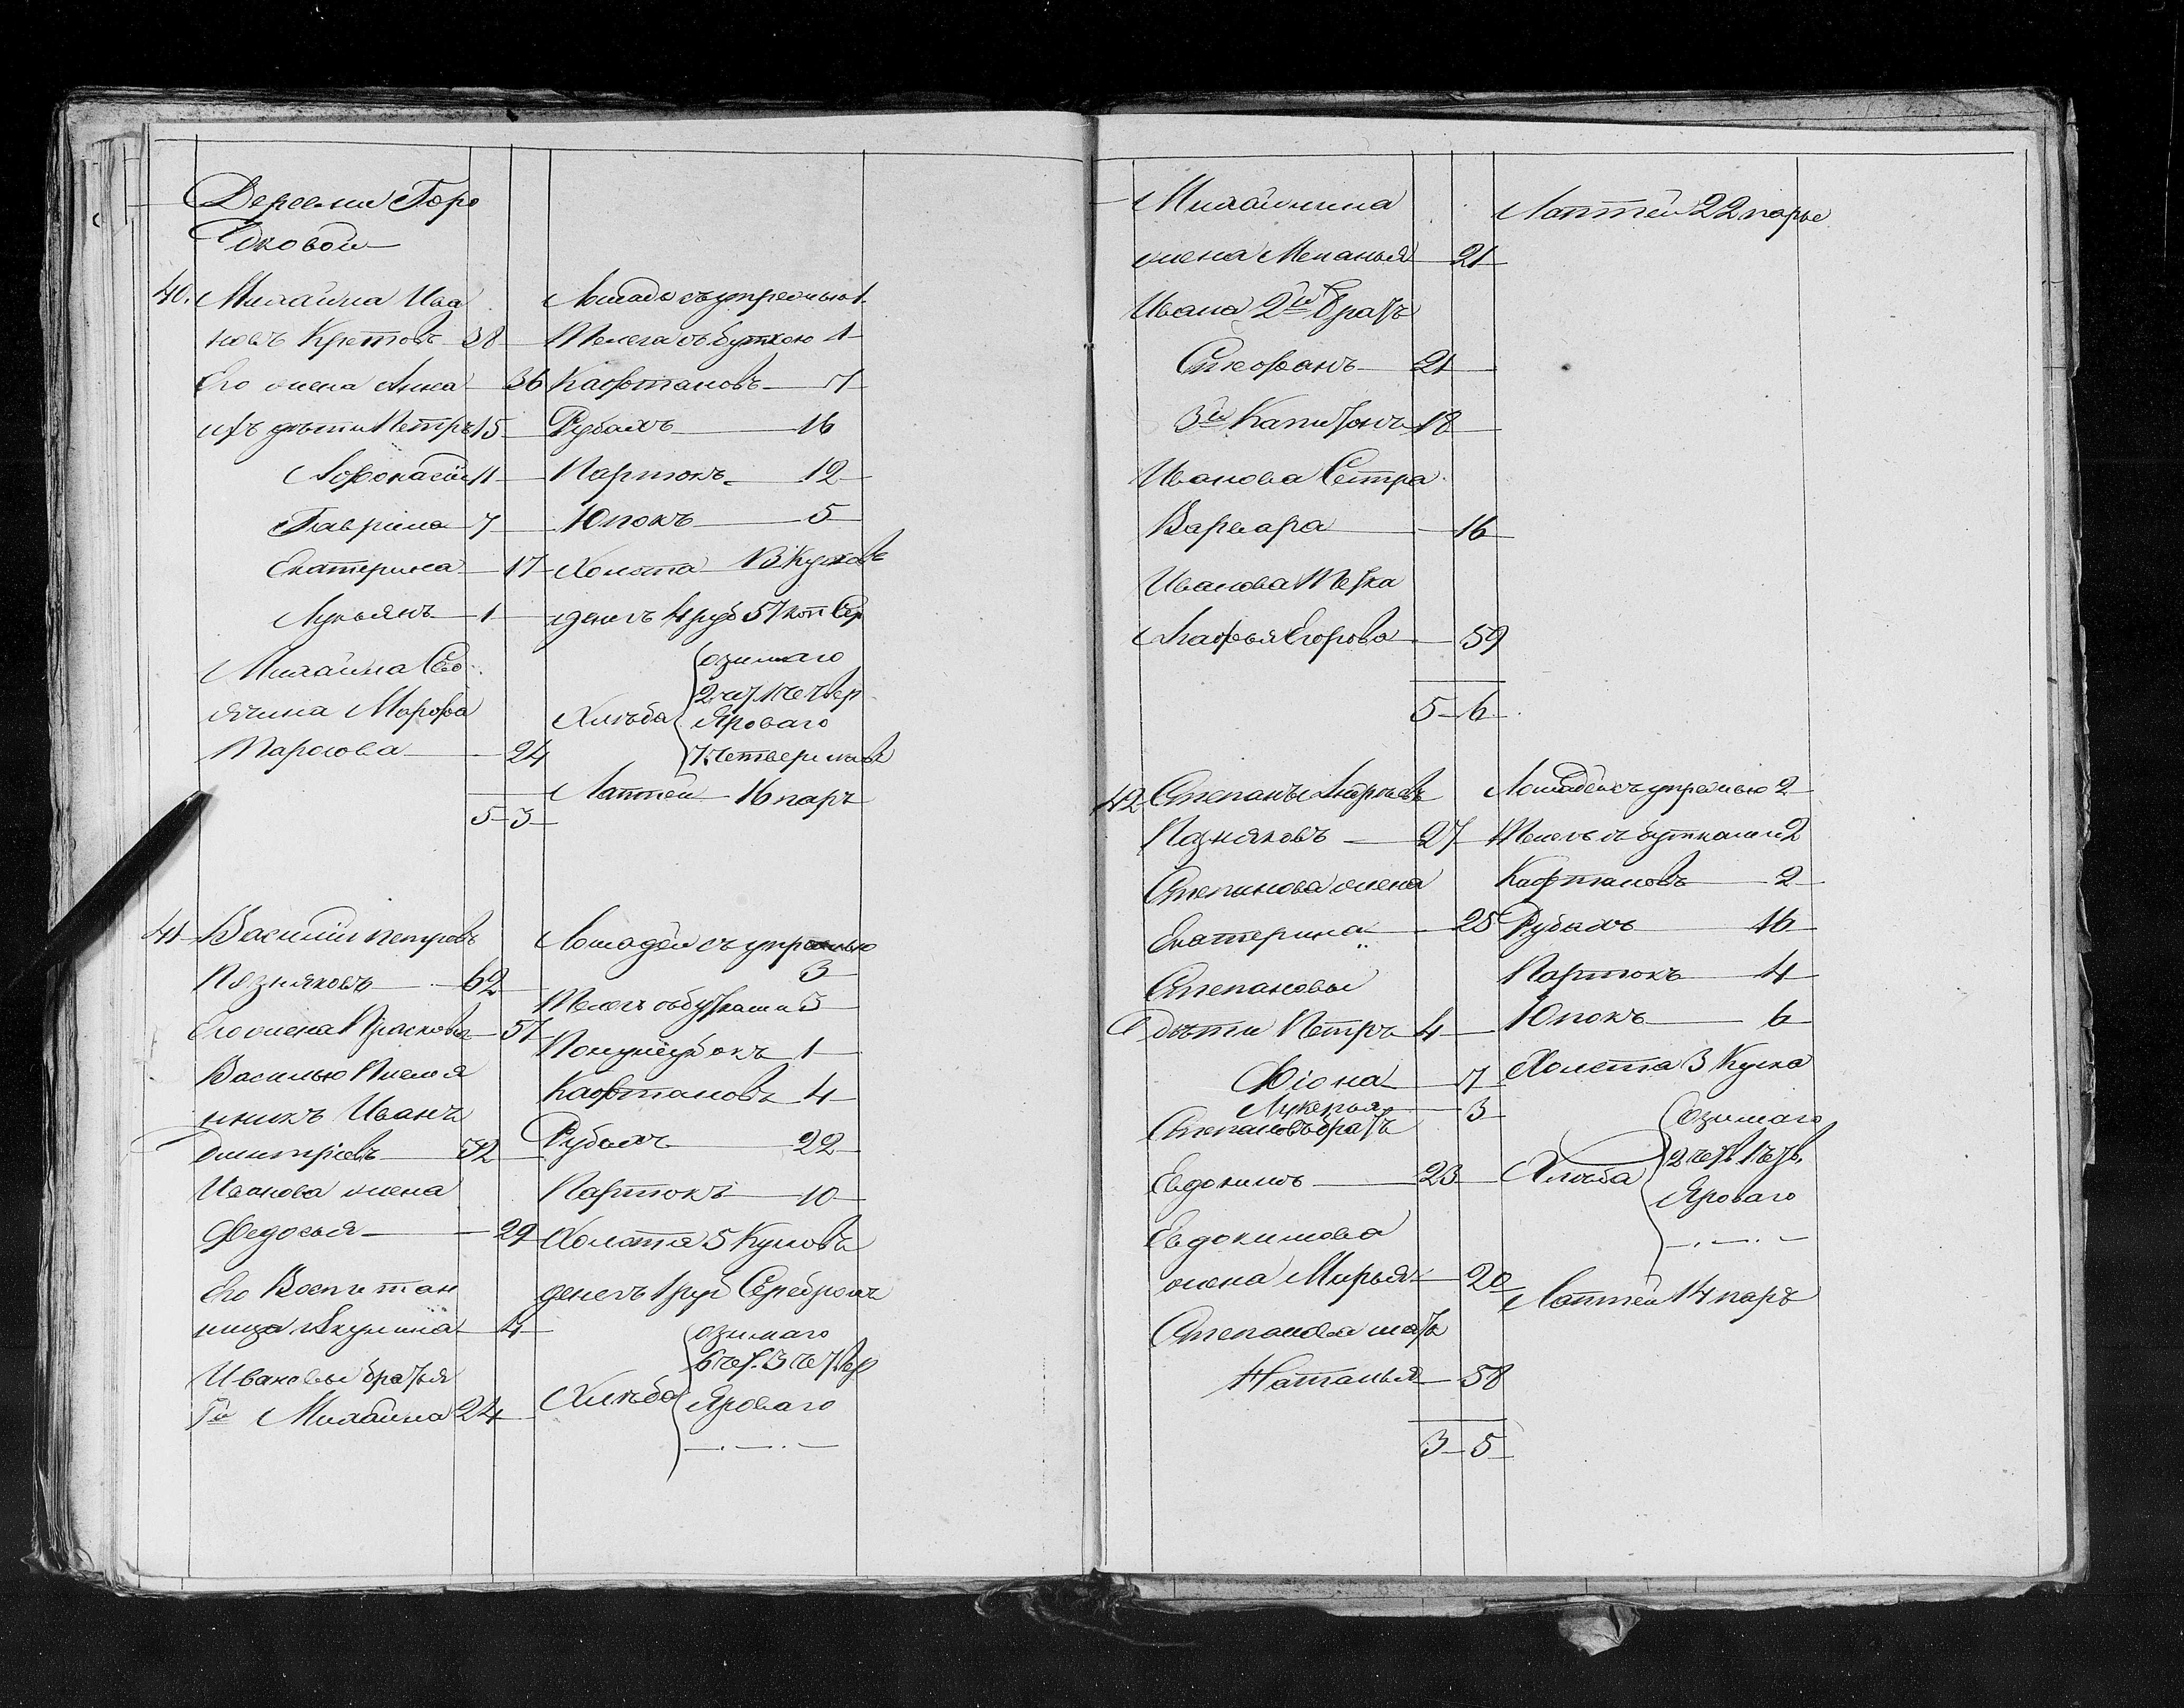 Деревни Горо
дковой
40. Михайла Ива
новъ Кретовъ 38
Его жена Анна 36
ихъ дѣти Петръ 15
Афонасій 11
Гаврила 7
Екатерина 17
Лукьянъ 1
Михайла Сво
ячина Марфа
Тарасова 24
5 3
Лошадь съ упряжью 1
Телега съ буткою 1
Кафтановъ 7
Рубахъ 16
Партокъ 12
Юпокъ 5
Холста 13 Кусковъ
денегъ 4 руб 57 коп Сер
Хлѣба
озимаго
2 чет. 1 четвер
Яроваго
7 четвериковъ
Лаптей 16 паръ
41 Василій Петровъ
Позняковъ 62
Его жена Прасковья 57
Василью Племя
нникъ Иванъ
Дмитріевъ 32
Иванова жена
Федосья 29
Его Воспитан
ница Акулина 4
Ивановы братья
1й Михайла 24
Лошадей съ упряжью
3
Телегъ съ бутками 3
Полушубокъ 1
Кафтановъ 4
Рубахъ 22
Партокъ 10
Холста 5 Кусковъ
денегъ 1 руб Серебромъ
Хлѣба
озимаго
6 чет. 3 четвер
Яроваго
—.—.—
Михайлина
жена Меланья 21
Ивана 2й братъ
Стефанъ 21
3й Капитонъ 18
Иванова Сестра
Варвара 16
Иванова Тетка
Агафья Егорова 59
5 6
Лаптей 22 пары
42 Степанъ Андреевъ
Позняковъ 27
Степанова жена
Екатерина 25
Степановы
Дѣти Петръ 4
Фіона 7
Лукерья 3
Степановъ братъ
Евдокимъ 23
Евдокимова
жена Марья 20
Степанова мать
Наталья 58
3 5
Лошадей съ упряжью 2
Телегъ съ бутками 2
Кафтановъ 2
Рубахъ 16
Партокъ 4
Юпокъ 6
Холста 3 Куска
Хлѣба
Озимаго
2 чет. 1 четв.
Яроваго
—.—.—
Лаптей 14 паръ